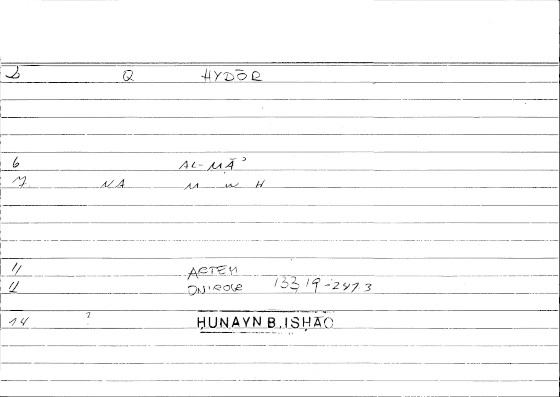 2 Q HYDŌR
6 AL-MĀʾ
7 NA M W H
11 ARTEM
12 ONIROCR 133,19-247,3
14 ? HUNAYN B. ISḤĀQ